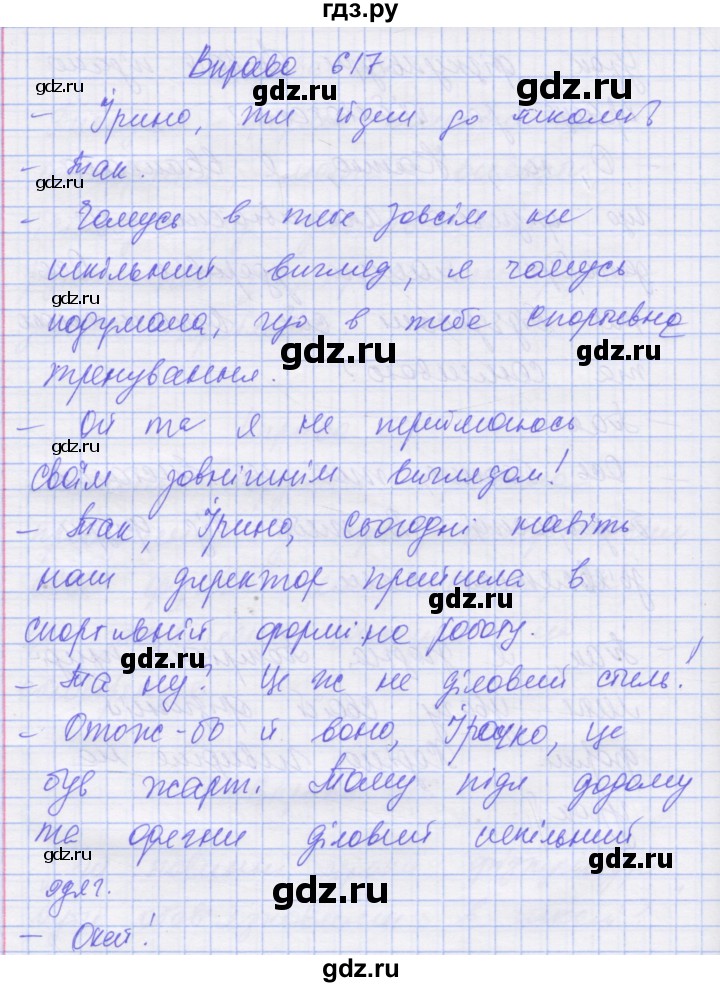 гдз.ру
Вправа 617
gdz.ru
gdz.ru
gdz.ru
– Ірино, ти йдеш до школи?
– Так.
gdz.ru
– Чомусь в тебе зовсім не
шкільний вигляд, я чомусь
gdz.ru
подумала, що в тебе спортивне
gdz.ru
gdz.ru
тренування.
– Ой та я не переймаюсь
gdz.ru
своїм зовнішнім виглядом!
– Так, Ірино, сьогодні навіть
gdz.ru
наш директор прийшла в
gdz.ru
спортивній формі на роботу.
gdz.ru
– Та ну? Це ж не діловий стиль!
– Отож-бо й воно, Ірочко, це
gdz.ru
був жарт. Тому піди додому
та одегни діловий шкільний
gdz.ru
gdz.ru
одяг.
gdz.ru
– Окей!
gdz.ru